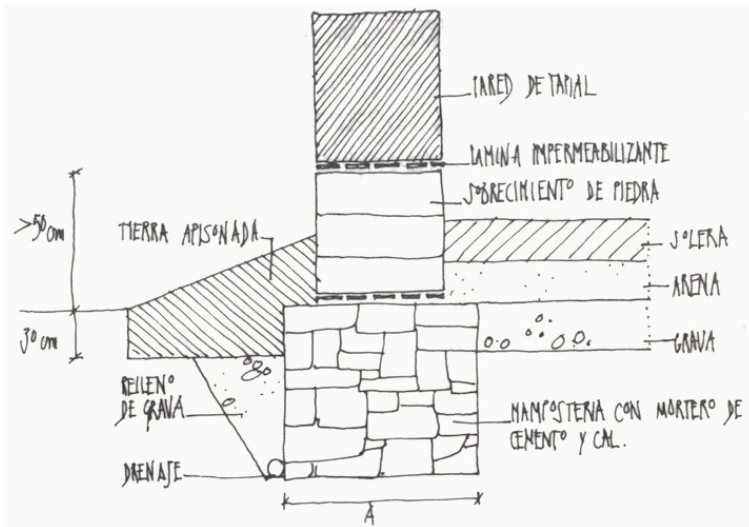 PARED DE TAPIAL
LAMINA IMPERMEABILIZANTE
SOBRECIMIENTO DE PIEDRA
>50 cm
TIERRA APISONADA
SOLERA
ARENA
30 cm
GRAVA
RELLENO
DE GRAVA
MAMPOSTERIA CON MORTERO DE
CEMENTO Y CAL.
DRENAJE
A